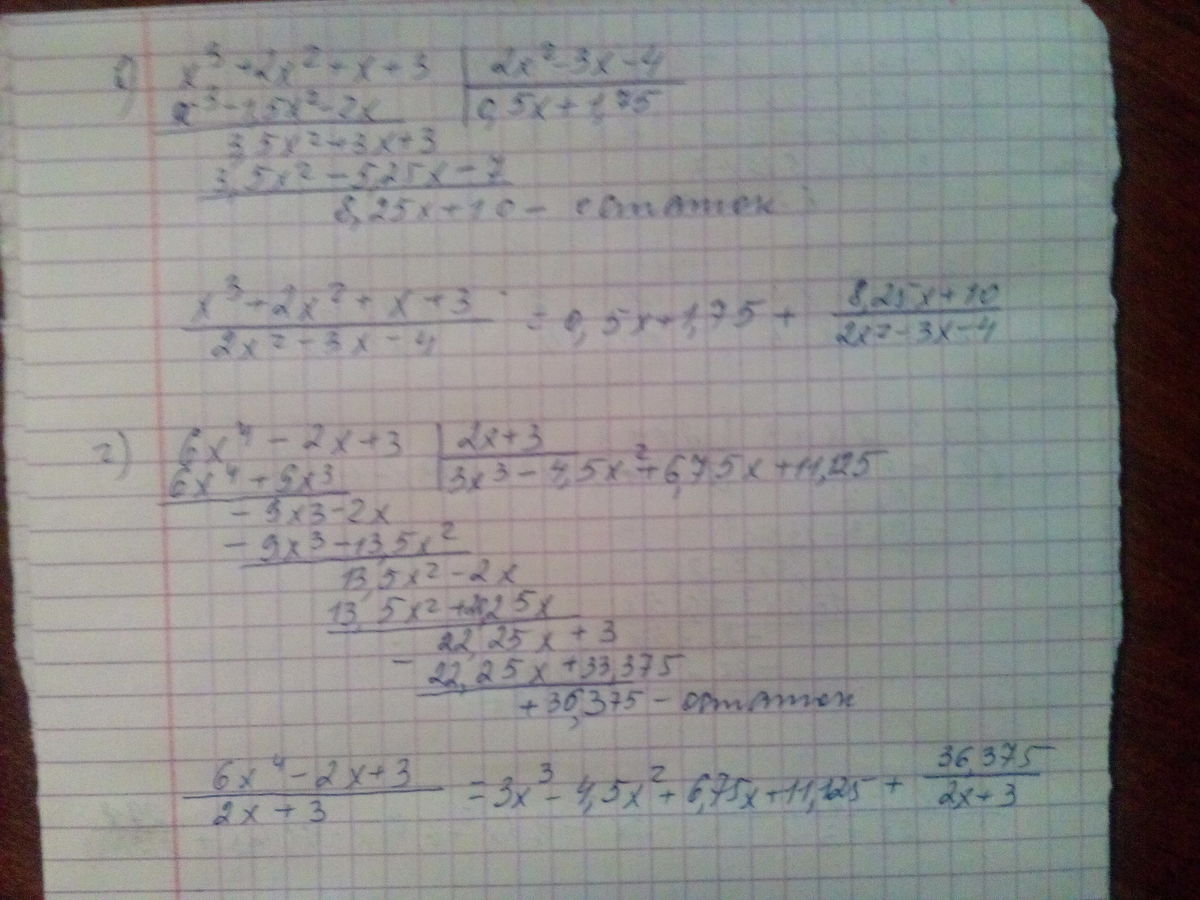 в) x³+2x²+x+3 | 2x²-3x-4
x³-1,5x²-2x | 0,5x+1,75
3,5x²+3x+3
3,5x²-5,25x-7
8,25x+10 - остаток
x³+2x²+x+3 / 2x²-3x-4 = 0,5x+1,75 + 8,25x+10 / 2x²-3x-4
г) 6x⁴-2x+3 | 2x+3
6x⁴+9x³ | 3x³-4,5x²+6,75x+11,125
-9x3-2x
-9x³-13,5x²
13,5x²-2x
13,5x²+20,25x
22,25x+3
- 22,25x+33,375
+36,375 - остаток
6x⁴-2x+3 / 2x+3 = 3x³-4,5x²+6,75x+11,125 + 36,375 / 2x+3